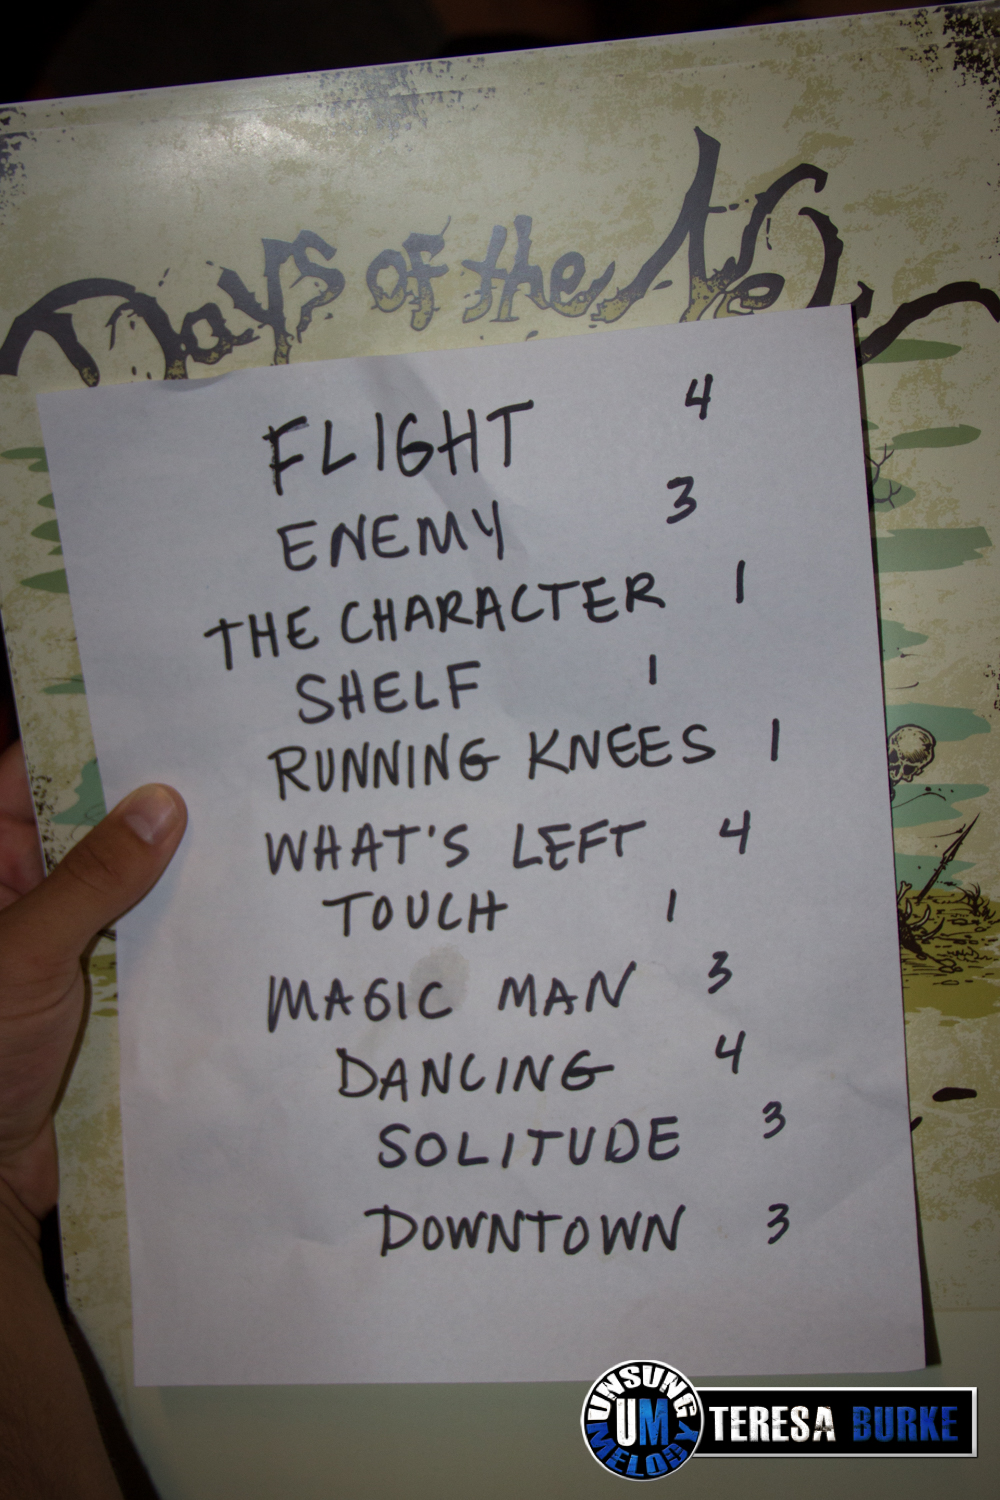 Days of the New
FLIGHT 4
ENEMY 3
THE CHARACTER 1
SHELF 1
RUNNING KNEES 1
WHAT'S LEFT 4
TOUCH 1
MAGIC MAN 3
DANCING 4
SOLITUDE 3
DOWNTOWN 3
UNSUNG
UM
MELODY
TERESA BURKE